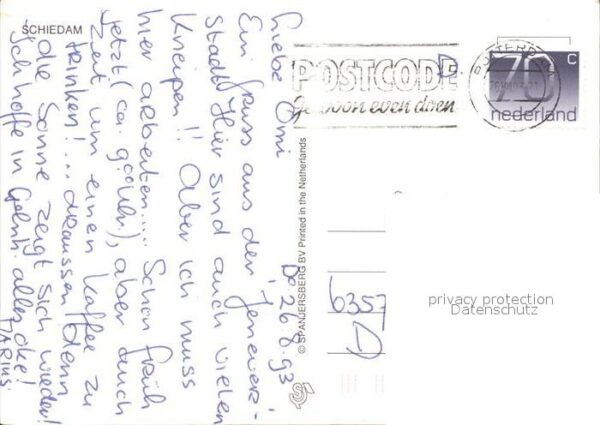 SCHIEDAM
Do 26.8.93
Liebe Omi
Ein Gruss aus der "Jenever"-
Stadt! Hier sind auch vielen
Kneipen!! Aber ich muss
hier arbeiten.... Schon früh
Jetzt (ca. 9°°Uhr), aber auch
Zeit um einen Kaffee zu
trinken!... draussen denn
die Sonne zeigt sich wieder!
Ich hoffe in alles oke!
DARIUS.
© SPANJERSBERG BV Printed in the Netherlands
POSTCODE
gewoon even doen
ROTTERDAM
70 C
nederland
6357
D
privacy protection
Datenschutz